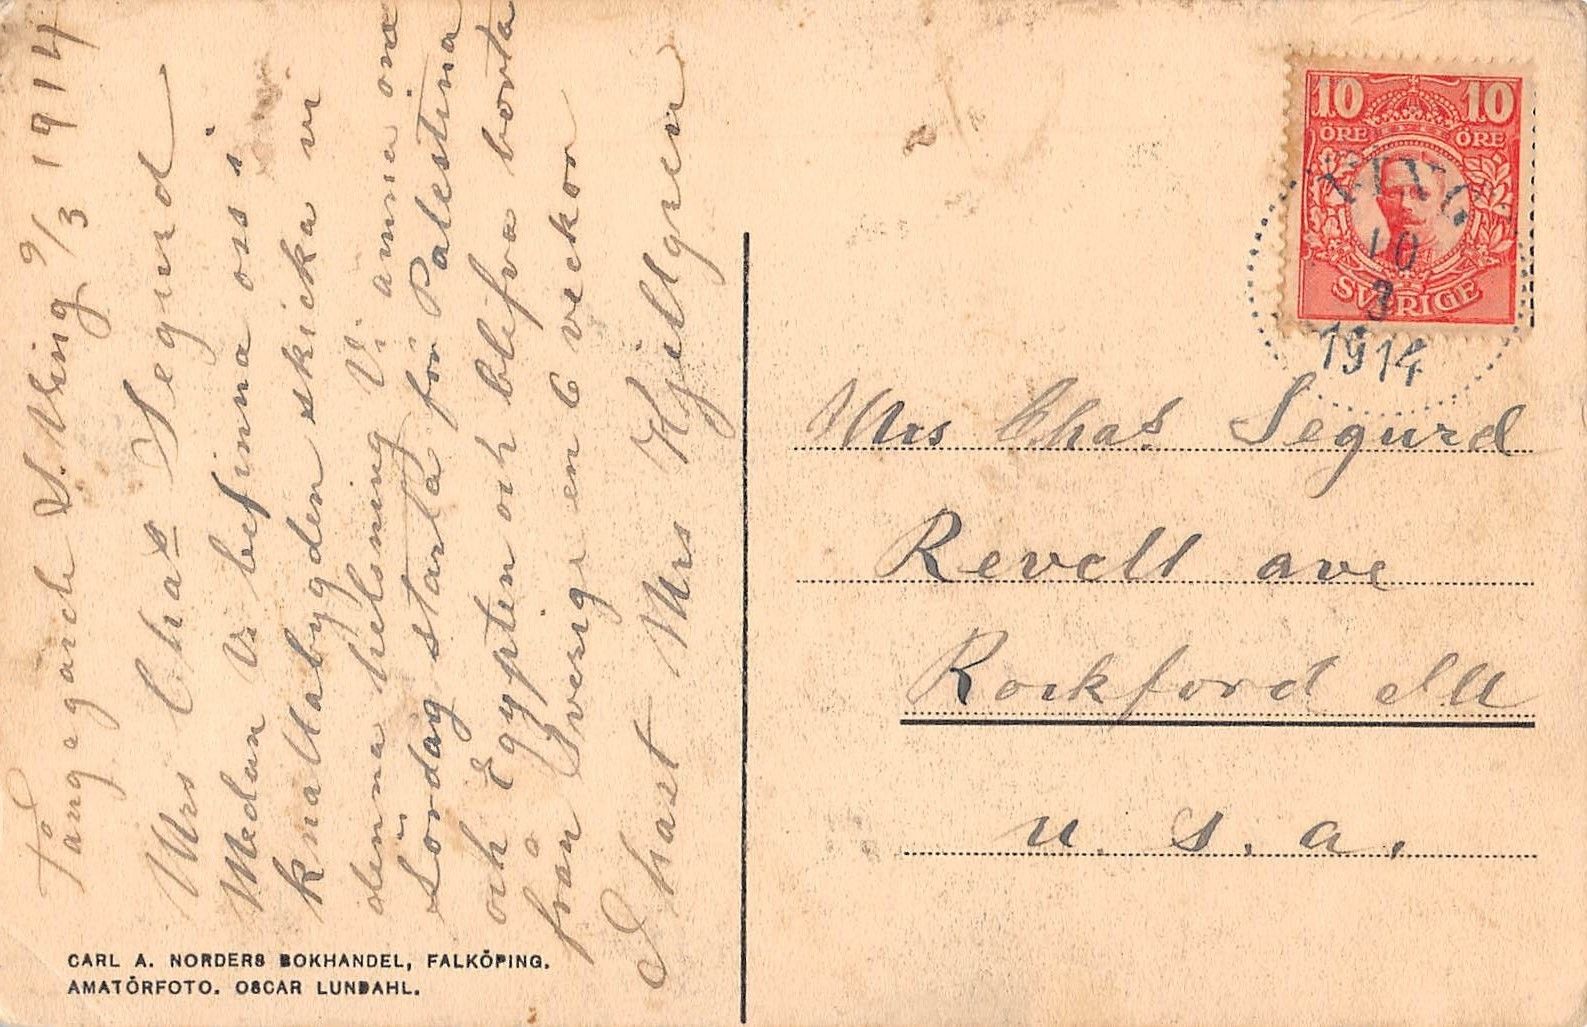 Tångagärde S. Ving 9/3 1914
Mrs Chas Segurd
Medan Vi befinna oss i
knallabygden skicka vi
denna helsning Vi ämna om
Lördag starta för Palestina
och Egypten och blifva borta
från Sverige en 6 veckor
I hast Mrs Kjellgren
CARL A. NORDERS BOKHANDEL, FALKÖPING.
AMATÖRFOTO. OSCAR LUNDAHL.
10 10
ÖRE ÖRE
SVERIGE
VING
10
3
1914
Mrs Chas Segurd
Revell ave
Rockford Ill
U. S. A.